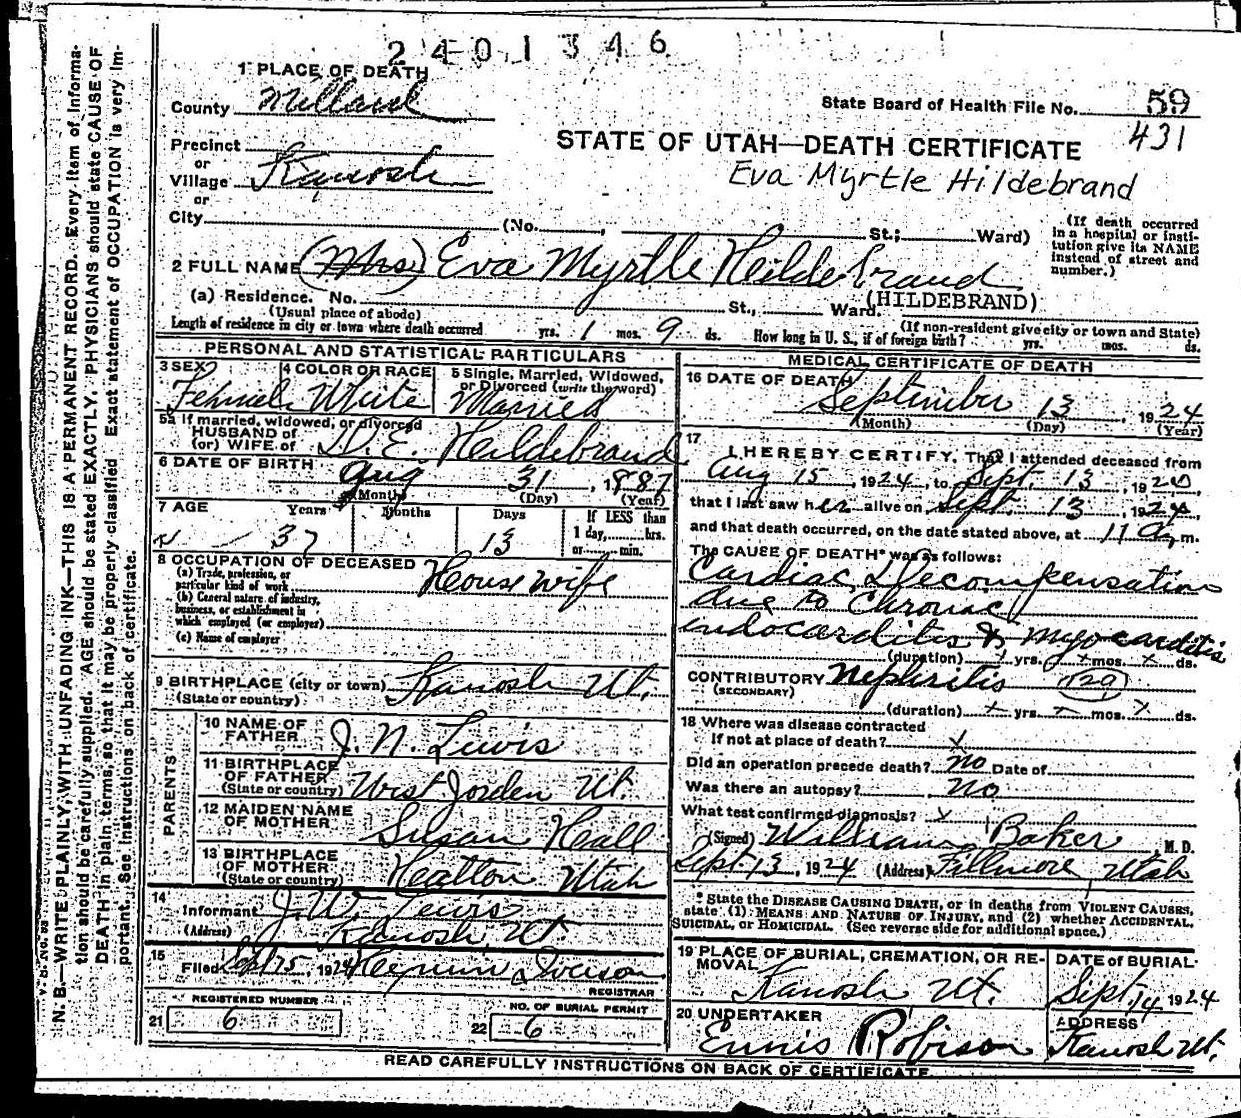 2401346
1 PLACE OF DEATH
County Millard
State Board of Health File No. 59
431
Precinct
or
Village Kanosh
or
STATE OF UTAH—DEATH CERTIFICATE
Eva Myrtle Hildebrand
City (No. , St.; Ward)
(If death occurred in a hospital or institution give its NAME instead of street and number.)
2 FULL NAME (Mrs) Eva Myrtle Heildebrand
(a) Residence. No. St., Ward. (HILDEBRAND)
(Usual place of abode) (If non-resident give city or town and State)
Length of residence in city or town where death occurred yrs. 1 mos. 9 ds. How long in U. S., if of foreign birth? yrs. mos. ds.
PERSONAL AND STATISTICAL PARTICULARS
3 SEX Female
4 COLOR OR RACE White
5 Single, Married, Widowed, or Divorced (write the word) Married
5a If married, widowed, or divorced
HUSBAND of
(or) WIFE of D. E. Heildebrand
6 DATE OF BIRTH Aug 31, 1887
(Month) (Day) (Year)
7 AGE Years 37 Months Days 13 If LESS than 1 day, hrs. or min.
8 OCCUPATION OF DECEASED House wife
(a) Trade, profession, or particular kind of work
(b) General nature of industry, business, or establishment in which employed (or employer)
(c) Name of employer
9 BIRTHPLACE (city or town) Kanosh Ut.
(State or country)
PARENTS
10 NAME OF FATHER J. N. Lewis
11 BIRTHPLACE OF FATHER (State or country) West Jorden Ut.
12 MAIDEN NAME OF MOTHER Susan Heall
13 BIRTHPLACE OF MOTHER (State or country) Heatton Utah
14 Informant J. W. Lewis
(Address) Kanosh, Ut.
15 Filed Sept 15, 1924 Iverson
REGISTRAR
REGISTERED NUMBER
21 6
NO. OF BURIAL PERMIT
22 6
MEDICAL CERTIFICATE OF DEATH
16 DATE OF DEATH
September 13, 1924
(Month) (Day) (Year)
17 I HEREBY CERTIFY, That I attended deceased from
Aug 15, 1924, to Sept. 13, 1920,
that I last saw her alive on Sept. 13, 1924,
and that death occurred, on the date stated above, at 11 a.m.
The CAUSE OF DEATH* was as follows:
Cardiac Decompensation
due to Chronic
endocarditis & myocarditis
(duration) x yrs. x mos. x ds.
CONTRIBUTORY Nephritis (129)
(SECONDARY)
(duration) x yrs. x mos. x ds.
18 Where was disease contracted
If not at place of death? x
Did an operation precede death? no Date of
Was there an autopsy? No
What test confirmed diagnosis? x
(Signed) William Baker, M. D.
Sept 13, 1924 (Address) Fillmore, Utah
* State the DISEASE CAUSING DEATH, or in deaths from VIOLENT CAUSES,
state (1) MEANS AND NATURE OF INJURY, and (2) whether ACCIDENTAL,
SUICIDAL, or HOMICIDAL. (See reverse side for additional space.)
19 PLACE OF BURIAL, CREMATION, OR REMOVAL
Kanosh Ut.
DATE of BURIAL
Sept. 14, 1924
20 UNDERTAKER
Ennis Robison
ADDRESS
Kanosh Ut.
READ CAREFULLY INSTRUCTIONS ON BACK OF CERTIFICATE
V. S. No. 98
N. B.—WRITE PLAINLY, WITH UNFADING INK—THIS IS A PERMANENT RECORD. Every item of informa-
tion should be carefully supplied. AGE should be stated EXACTLY. PHYSICIANS should state CAUSE OF
DEATH in plain terms, so that it may be properly classified. Exact statement of OCCUPATION is very im-
portant. See instructions on back of certificate.